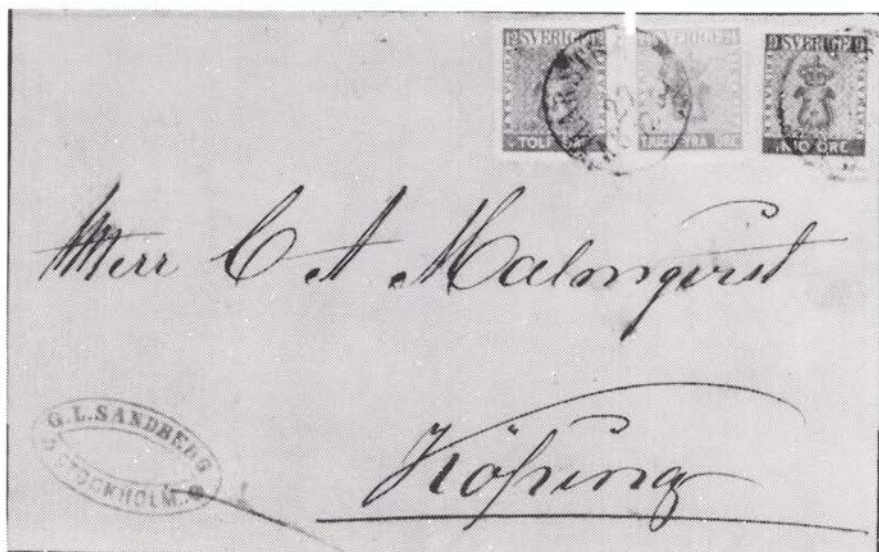 12 SVERIGE 12
TOLF ÖRE
SVERIGE 24
TJUGUFYRA ÖRE
9 SVERIGE 9
NIO ÖRE
Herr C A Malmqvist
Köping
G. L. SANDBERG
STOCKHOLM.